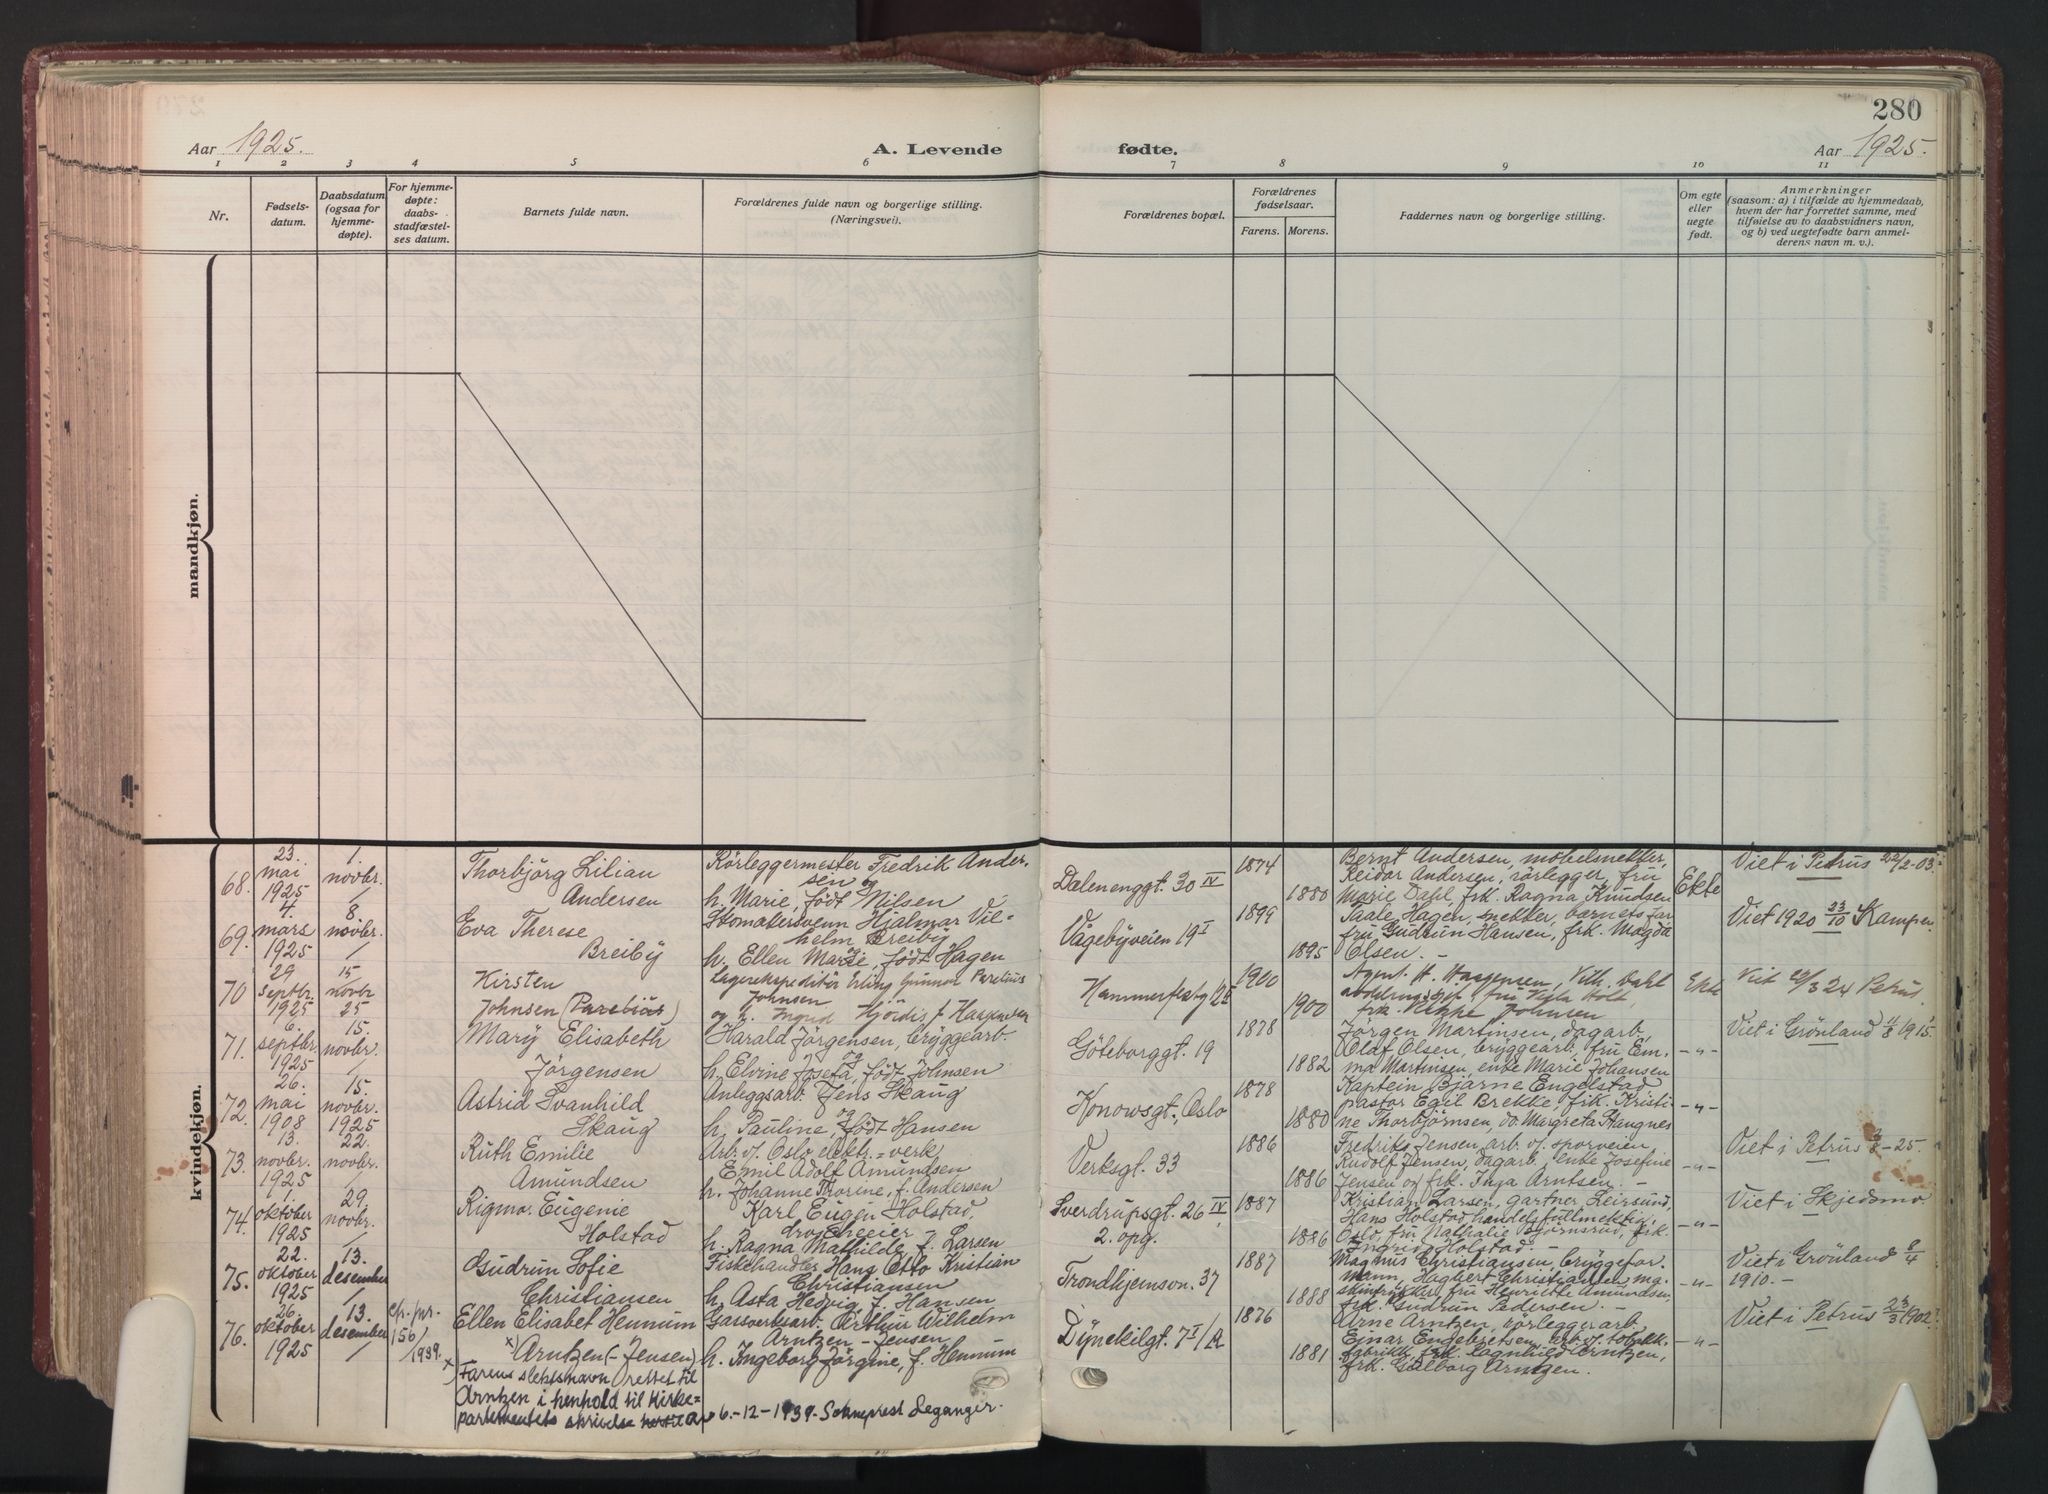 280
Aar 1925.
A. Levende
fødte.
Aar 1925.
1 2 3 4 5 6 7 8 9 10 11
Nr.
Fødsels-
datum.
Daabsdatum
(ogsaa for
hjemme-
døpte).
For hjemme-
døpte:
daabs-
stadfæstel-
ses datum.
Barnets fulde navn.
Forældrenes fulde navn og borgerlige stilling.
(Næringsvei).
Forældrenes bopæl.
Forældrenes
fødselsaar.
Farens. Morens.
Faddernes navn og borgerlige stilling.
Om egte
eller
uegte
født.
Anmerkninger
(saasom: a) i tilfælde av hjemmedaab,
hvem der har forrettet samme, med
tilføielse av to daabsvidners navn,
og b) ved uegtefødte barn anmel-
derens navn m. v.).
mandkjøn.
kvindekjøn.
68.
23.
mai
1925
1.
novbr.
Thorbjörg Lilian
Andersen
Rörleggermester Fredrik Ander-
sen og
h. Marie, født Nilsen
Dalenenggt. 30 IV
1874
1880
Bernt Andersen, möbelsnekker,
Reidar Andersen, rörlegger, fru
Marie Dahl, frk. Ragna Knudsen
Ekte
Viet i Petrus 22/2-03.
69.
4.
mars
1925
8
novbr.
Eva Therese
Breiby
Hjalmar Vil-
helm Breiby
h. Ellen Marie, født Hagen
Vågebyveien 19 I
1899
1895
Taale Hagen, snekker, barnets far
fru Gudrun Hansen, frk. Magda
Olsen. -
Viet 1920 23/10 Kampen
70
29
septbr.
1925
15
novbr
25
Kirsten
Johnsen (Parelius)
Lagerekspeditör Erling Gunnar Parelius
Johnsen
og h. Ingrid Hjördis f Haagensen
Hammerfestg
1900
1900
Agent H. Haagensen, Vilh. Dahl
fru Holt,
frk. Johnsen
Ekte
Viet /3 24 Petrus
71.
6.
septbr.
1925
15.
novbr.
Mary Elisabeth
Jörgensen
Harald Jörgensen, bryggearb.
og
h. Elvine Josefa, født Johnsen
Göteborggt. 19
1878
1882
Jörgen Martinsen, dagarb,
Olaf Olsen, bryggearb. fru Em-
ma Martinsen, enke Marie Johansen
-"-
Viet i Grönland 4/8 1915
72.
26.
mai
1908
15.
novbr.
1925
Astrid Svanhild
Skaug
Anleggsarb. Jens Skaug
og
h. Pauline, født Hansen
Konowsgt., Oslo
1878
1880
Kaptein Bjarne Engelstad
pastor Egil Brekke, frk. Kristi-
ne Thorbjörnsen, do. Margreta Haugnes
-"-
73.
13.
novbr.
1925
22.
novbr.
Ruth Emilie
Amundsen
Arb. v. Oslo elektr. verk,
Emil Adolf Amundsen
h. Johanne Thorine, f. Andersen
Verksgt. 33
1886
1886
Fredrik Jensen, arb. v. sporveien
Rudolf Jensen, dagarb., enke Josefine
Jensen og frk. Inga Arntsen. -
-"-
Viet i Petrus -25.
74.
1.
oktober
1925
29.
novbr.
Rigmor Eugenie
Holstad
Karl Eugen Holstad,
droscheeier
h. Ragna Mathilde, f. Larsen
Sverdrupsgt. 26 IV,
2. opg.
1887
1886
Kristian Larsen, gartner Leirsund,
Hans Holstad, handelsfullmektig,
Oslo, fru Nathalie Björnsrud, frk.
Ingrid Holstad. -
-"-
Viet i Skjedsmo
75.
22.
oktober
1925
13.
desember
Gudrun Sofie
Christiansen
Fiskehandler Hans Otto Kristian
Christiansen
h. Asta Hedvig, f. Hansen
Trondhjemsvn. 37
1887
1888
Magnus Christiansen, bryggefor-
mann, Hagbert Christiansen, ma-
fru Henriette Amundsen,
frk. Gudrun Pedersen. -
-"-
Viet i Grönland /4
1910.-
76.
26.
oktober
1925
13.
desember
156/
1939.
Ellen Elisabet Hennum
x) Arntzen (- Jensen)
Gassverksarb. Arthur Wilhelm
Arntzen - Jensen
h. Ingeborg Jörgine, f. Hennum
Dynekilgt. 7 I/A
1876
1881
Arne Arntzen, rörleggerarb.
Einar Engebretsen, arb. v. tobakk-
fabrikk, frk. Ragnhild Arntzen,
frk. Gulborg Arntzen.
-"-
Viet i Petrus 23/3 1902.
x) Farens slektsnavn rettet til
Arntzen i henhold til Kirke-
partementets skrivelse av 6.-12-1939. Sokneprest Deganger.